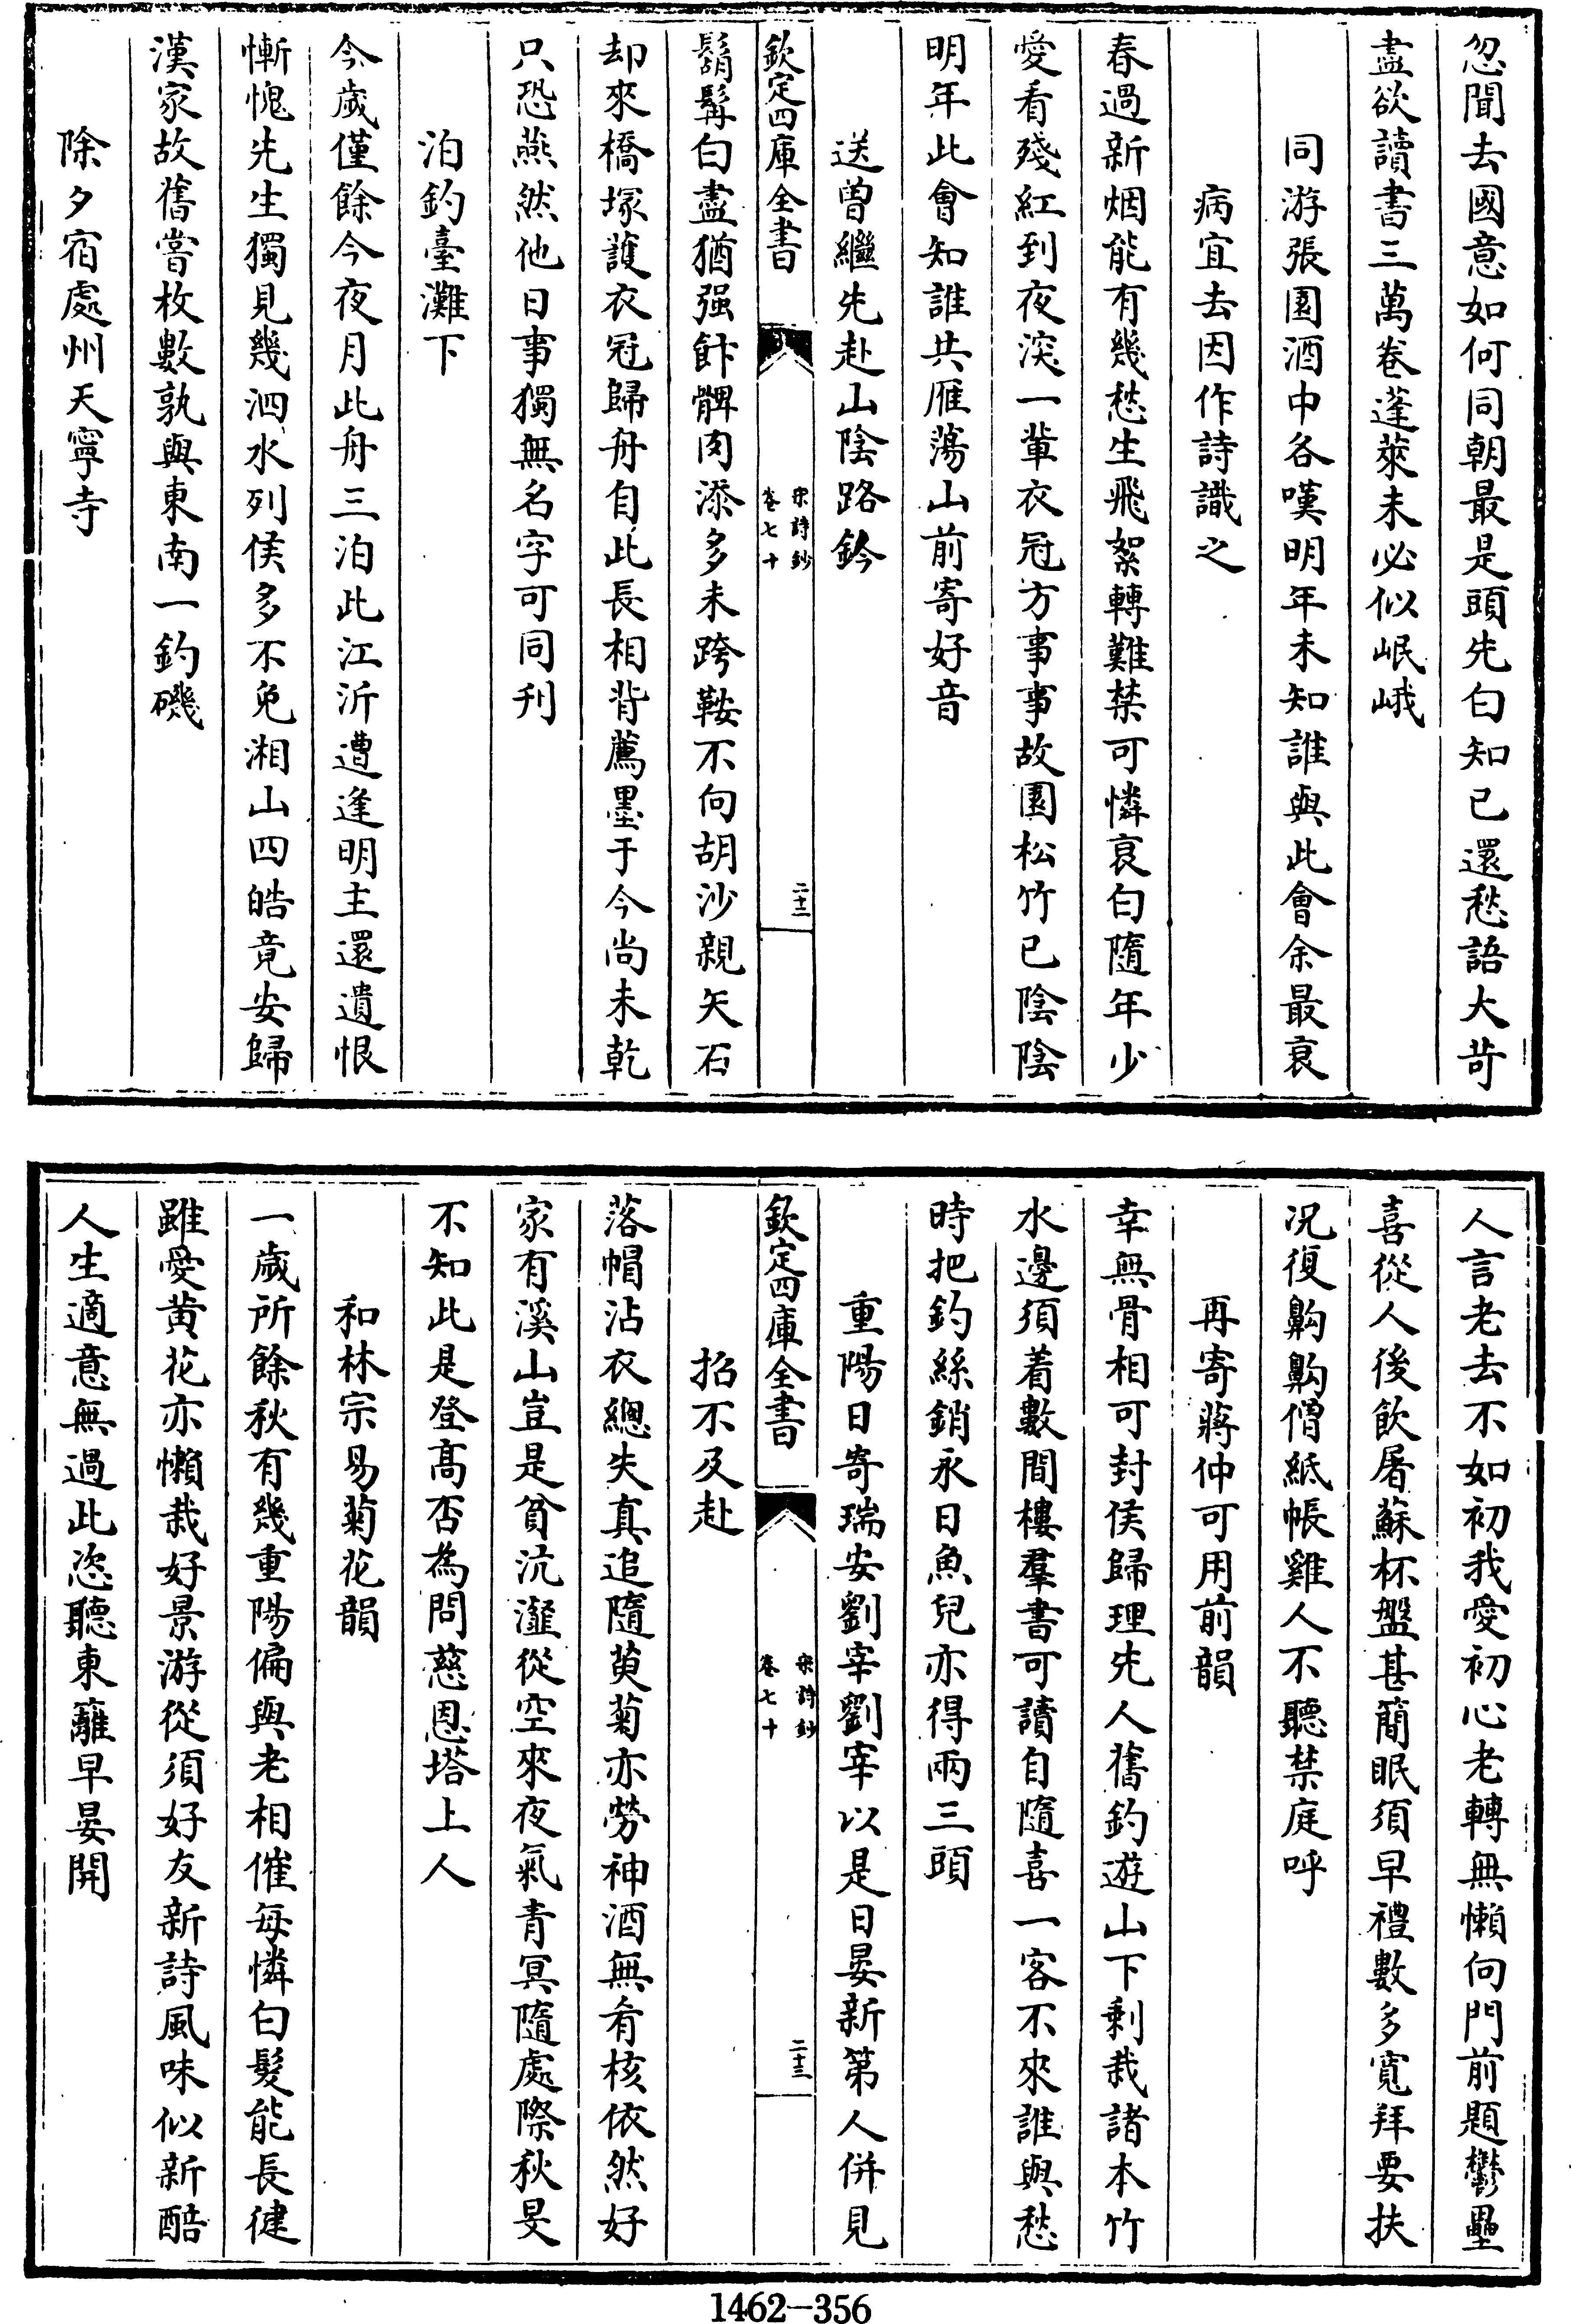 忽聞去國意如何同朝最是頭先白知已還愁語大苛
盡欲讀書三萬卷蓬萊未必似岷峨
同游張園酒中各嘆明年未知誰與此會余最衰
病宜去因作詩識之
春過新烟能有幾愁生飛絮轉難禁可憐衰白隨年少
愛看殘紅到夜深一輩衣冠方事事故園松竹已陰陰
明年此會知誰共雁蕩山前寄好音
送曾繼先赴山陰路鈐
欽定四庫全書
宋詩鈔
卷七十
二十二
鬍髯白盡猶强飰髀肉添多未跨鞍不向胡沙親矢石
却來橋塚護衣冠歸舟自此長相背薦墨于今尚未乾
只恐燕然他日事獨無名字可同刋
泊釣臺灘下
今歲僅餘今夜月此舟三泊此江沂遭逢明主還遺恨
慚愧先生獨見幾泗水列侯多不免湘山四皓竟安歸
漢家故舊嘗枚數孰與東南一釣磯
除夕宿處州天寧寺
人言老去不如初我愛初心老轉無懶向門前題鬱壘
喜從人後飲屠蘇杯盤甚簡眠須早禮數多寬拜要扶
况復齁齁僧紙帳雞人不聽禁庭呼
再寄蔣仲可用前韻
幸無骨相可封侯歸理先人舊釣遊山下剩栽諸本竹
水邊須着數間樓羣書可讀自隨喜一客不來誰與愁
時把釣絲銷永日魚兒亦得兩三頭
重陽日寄瑞安劉宰劉宰以是日晏新第人併見
欽定四庫全書
宋詩鈔
卷七十
二十三
招不及赴
落帽沾衣總失真追隨萸菊亦勞神酒無肴核依然好
家有溪山豈是貧沆瀣從空來夜氣青冥隨處際秋旻
不知此是登高否為問慈恩塔上人
和林宗易菊花韻
一歲所餘秋有幾重陽偏與老相催每憐白髮能長健
雖愛黃花亦懶栽好景游從須好友新詩風味似新醅
人生適意無過此恣聽東籬早晏開
1462-356